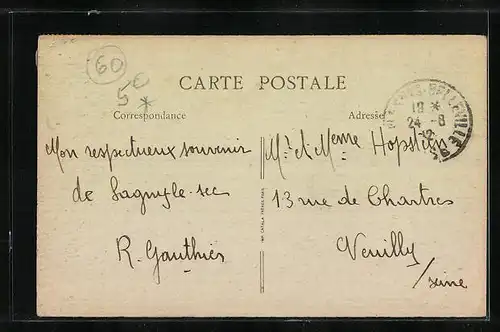 60
50
*
CARTE POSTALE
Correspondance
Adresse
BELLEVILLE
18 *
24 - 8
Mon respectueux souvenir
de Lagny-le-sec
R. Gauthier
Mr et Mme
13 rue de Chartres
Neuilly
/seine
IMP. CATALA FRÈRES, PARIS